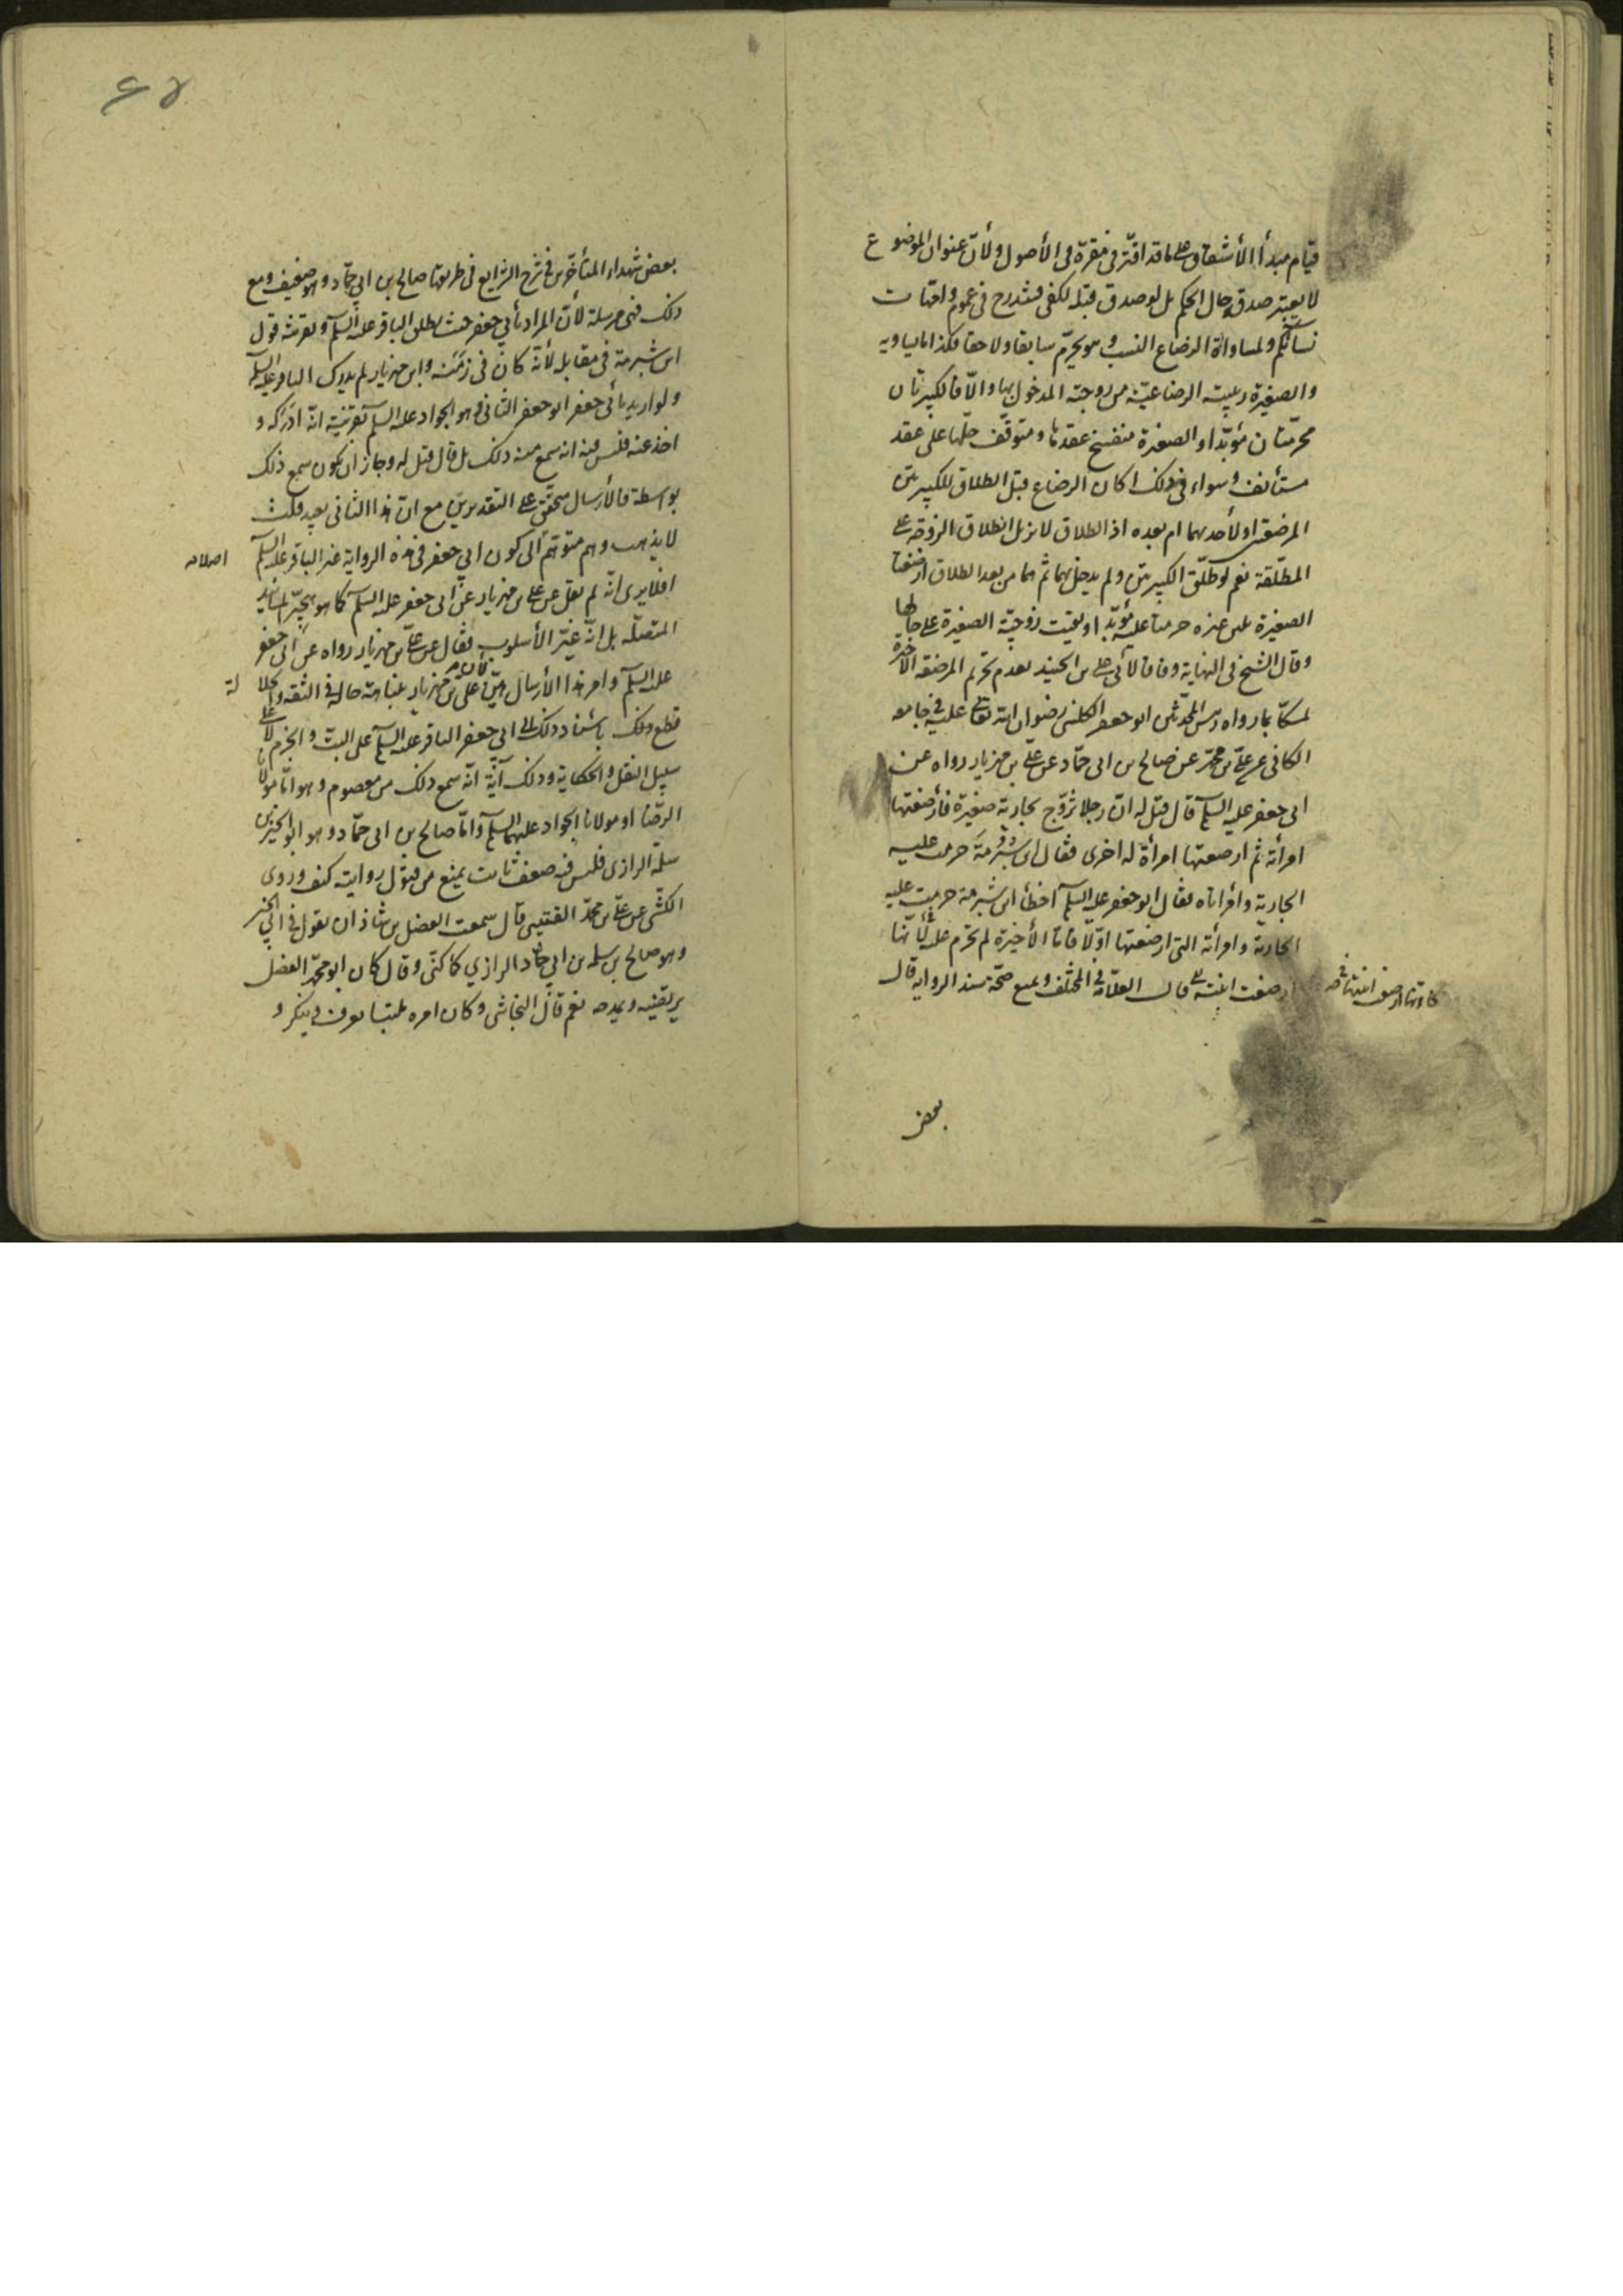 قيام مبدأ الأشتقاق على ما قد اقترّ في مقرّه في الأصول ولأن عنوان الموضوع
لا يعتبر صدق حال الحكم بل لو صدق قبله لكفى فتندرج في عموم وامهات
نسائكم ولمساواة الرضاع النسب وهو يحرّم سابقا ولاحقا فكذا ما يساويه
والصغيرة ربيبته الرضاعيّة من زوجته المدخول بها والّا فالكبيرتان
محرّمتان مؤبّدا والصغيرة منفسخ عقدها ومتوقّف حلّها على عقد
مستأنف وسواء في ذلك اكان الرضاع قبل الطلاق للكبيرتين
المرضعتين او لأحديهما ام بعده اذ الطلاق لا يزيل اطلاق الزوجة على
المطلّقة نعم لو طلّق الكبيرتين ولم يدخل بهما ثم هما من بعد الطلاق ارضعتا
الصغيرة بلبن غيره حرمتا عليه مؤبّدا وبقيت زوجيّة الصغيرة على حالها
وقال الشيخ في النهاية وفاقا لأبي علي بن الجنيد بعدم تحريم المرضعة الأخيرة
تمسكا بما رواه رئيس المحدّثين ابو جعفر الكليني رضوان الله تعالى عليه في جامعه
الكافي عن علي بن محمّد عن صالح بن ابي حمّاد عن علي بن مهزيار رواه عن
ابي جعفر عليه السلم قال قيل له ان رجلا تزوّج بجارية صغيرة فأرضعتها
امرأته ثم ارضعتها امرأة له اخرى فقال ابن شبرمة حرمت عليه
الجارية وامرأتاه فقال ابو جعفر عليه السلم اخطأ ابن شبرمة حرمت عليه
الجارية وامرأته التي ارضعتها اوّلا فامّا الأخيرة لم تحرم عليه لأنّها
ارضعت ابنته قال العلّامة في المختلف ويمنع صحّة سند الرواية قال
كأنها ارضعت ابنتها
بعض
بعض شهداء المتأخّرين في شرح الشرايع في طريقها صالح بن ابي حمّاد وهو ضعيف ومع
ذلك فهي مرسلة لأنّ المراد بأبي جعفر حيث يطلق الباقر عليه السلم وبقرينة قول
ابن شبرمة في مقابله لأنّه كان في زمنه وابن مهزيار لم يدرك الباقر عليه السلم
ولو اريد بأبي جعفر ابو جعفر الثاني وهو الجواد عليه السلم بقرينة انّه ادركه و
اخذ عنه فليس فيه انه سمع منه ذلك بل قال قيل له وجاز ان يكون سمع ذلك
بواسطة فالأرسال متحقّق على التقديرين مع انّ هذا الثاني بعيد قلت
لا يذهب وهم متوهّم الى كون ابي جعفر في هذه الرواية غير الباقر عليه السلم اصلا
افلا يرى انّه لم يقل عن علي بن مهزيار عن ابي جعفر عليه السلم كما هو هجّير
المتصلة بل انّه غيّر الأسلوب فقال عن علي بن مهزيار رواه عن ابي جعفر
عليه السلم وامر هذا الأرسال هيّن لأنّ علي بن مهزيار بنباهة حاله في الثقة والجلالة
قطع ذلك بإسناد ذلك الى ابي جعفر الباقر عليه السلم على البتّ والجزم لا على
سبيل النقل والحكاية وذلك آية انّه سمع ذلك من معصوم وهو امّا مولانا
الرضا او مولانا الجواد عليهما السلم وامّا صالح بن ابي حمّاد وهو ابو الخير بن
سلمة الرازي فليس فيه ضعف ثابت يمنع من قبول روايته كيف وروى
الكشّي عن علي بن محمّد القتيبي قال سمعت الفضل بن شاذان يقول في ابي الخير
وهو صالح بن سلمة بن ابي حمّاد الرازي كما كنّى وقال كان ابو محمّد الفضل
يرتضيه ويمدحه نعم قال النجاشي وكان امره ملتبسا يعرف وينكر و